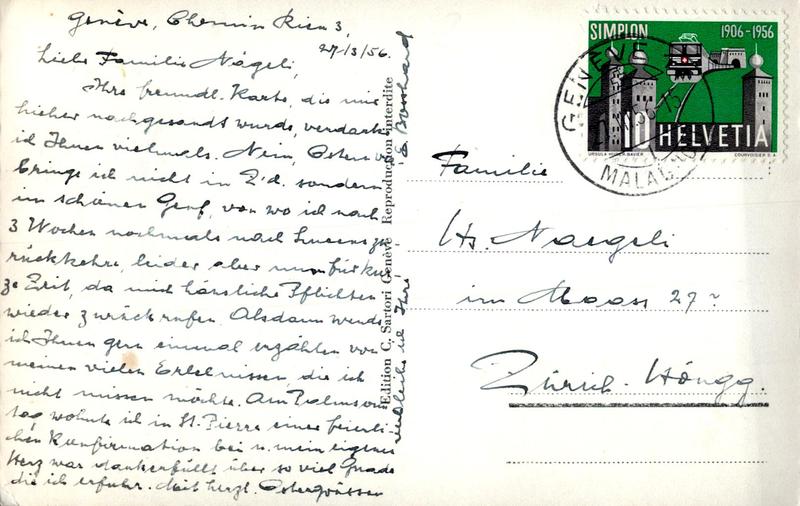 Genève, Chemin Rieu 3,
27/3/56.
Liebe Familie Nägeli,
Ihre freundl. Karte, die mir
hieher nachgesandt wurde, verdanke
ich Ihnen vielmals. Nein, Ostern ver
bringe ich nicht in Z'ch. sondern
im schönen Genf, von wo ich nach
3 Wochen nochmals nach zu
rückkehre, leider aber nur für kur
ze Zeit, da mich häusliche Pflichten
wieder zurückrufen. Alsdann werde
ich Ihnen gern einmal erzählen von
meinen vielen Erlebnissen, die ich
nicht missen möchte. Am Palmsonn
tag wohnte ich in St. Pierre einer feierli-
chen Konfirmation bei u. mein eigenes
Herz war dankerfüllt über so viel Gnade
die ich erfuhr. Mit herzl. Ostergrüssen
verbleibe ich Ihre
E. Bosshard
Edition C. Sartori Genève Reproduction interdite
SIMPLON 1906-1956
HELVETIA
COURVOISIER S.A.
GENÈVE
MALAGNOU
Familie
Hs. Naegeli
im Maas 27
Zürich-Höngg.